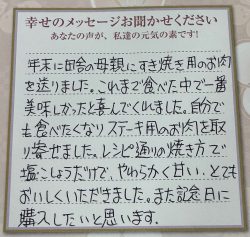 幸せのメッセージお聞かせください
あなたの声が、私達の元気の素です!
年末に田舎の母親にすき焼き用のお肉
を送りました。これまで食べた中で一番
美味しかったと喜んでくれました。自分で
も食べたくなりステーキ用のお肉を取
り寄せました。レシピ通りの焼き方で
塩こしょうだけで、やわらかく甘い、とても
おいしくいただきました。また記念日に
購入したいと思います。